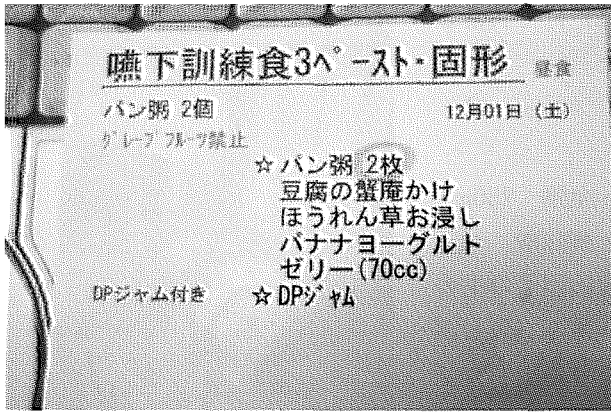 嚥下訓練食3ペースト・固形 昼食
パン粥 2個 12月01日 (土)
グレープフルーツ禁止
☆パン粥 2枚
豆腐の蟹庵かけ
ほうれん草お浸し
バナナヨーグルト
ゼリー(70cc)
DPジャム付き ☆DPジャム